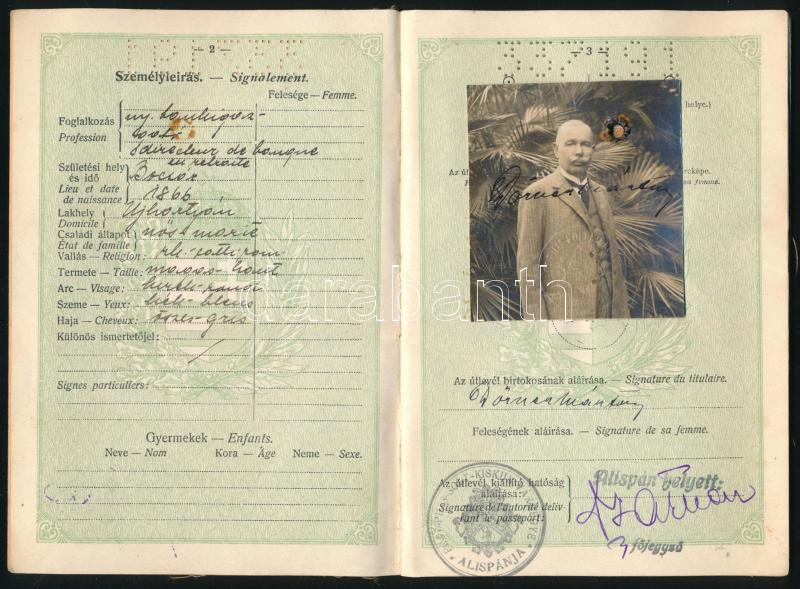 — 2 —
Személyleirás. — Signalement.
Felesége — Femme.
Foglalkozás
Profession
ny. bankigaz-
gató
directeur de banque
en retraite
Születési hely
és idő
Lieu et date
de naissance
1866
Lakhely
Domicile
Ujhartyán
Családi állapot
État de famille
nős marié
Vallás — Religion: rk. cath. rom
Termete — Taille: magas haut
Arc — Visage: kerek rond
Szeme — Yeux: kék bleus
Haja — Cheveux: őszes gris
Különös ismertetőjel:
Signes particuliers:
Gyermekek — Enfants.
Neve — Nom Kora — Âge Neme — Sexe.
— 3 —
337191
helye.)
Az út
rcképe.
sa femme.
darabanth
Az útlevél birtokosának aláírása. — Signature du titulaire.
Feleségének aláírása. — Signature de sa femme.
Az útlevelet kiállító hatóság
aláírása:
Signature de l'autorité déliv-
rant le passeport:
Alispán helyett:
főjegyző
ALISPÁNJA